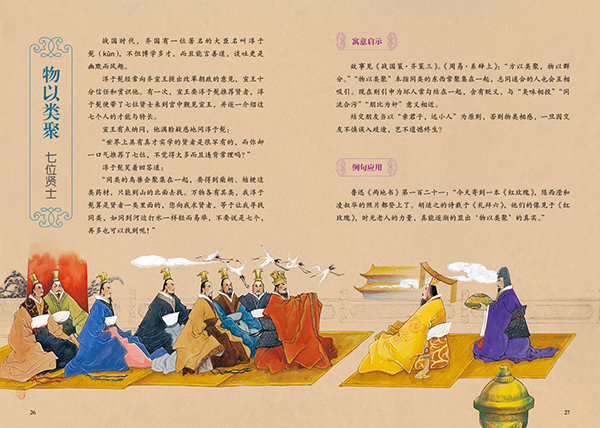 物以类聚
七位贤士
战国时代，齐国有一位著名的大臣名叫淳于
髡（kūn），不但博学多才，而且能言善道，谈吐更是
幽默而风趣。
淳于髡经常向齐宣王提出改革朝政的意见，宣王十
分信任和赏识他。有一次，宣王要淳于髡推荐贤者，淳
于髡便带了七位贤士来到宫中觐见宣王，并逐一介绍这
七个人的才能与特长。
宣王有点纳闷，他满脸疑惑地问淳于髡：
“世界上具有真才实学的贤者是很罕有的，而你却
一口气推荐了七位，不觉得太多而且违背常理吗？”
淳于髡笑着回答道：
“同类的鸟兽会聚集在一起，要得到柴胡、桔梗这
类药材，只能到山的北面去找。万物各有其类，我淳于
髡算是贤者一类里面的，您向我求贤者，等于让我寻找
同类，如同到河边打水一样轻而易举，不要说是七个，
再多也可以找到呢！”
26
寓意启示
故事见《战国策·齐策三》。《周易·系辞上》：“方以类聚，物以群
分。”“物以类聚”本指同类的东西常聚集在一起，志同道合的人也会互相
吸引。现在则引申为坏人常勾结在一起，含有贬义，与“臭味相投”“同
流合污”“朋比为奸”意义相近。
结交朋友当以“亲君子，远小人”为原则，否则物类相感，一旦因交
友不慎误入歧途，岂不遗憾终生？
例句应用
鲁迅《两地书》第一百二十一：“今天寄到一本《红玫瑰》，陈西滢和
凌叔华的照片都登上了。胡适之的诗载于《礼拜六》，他们的像见于《红
玫瑰》，时光老人的力量，真能逐渐的显出‘物以类聚’的真实。”
27